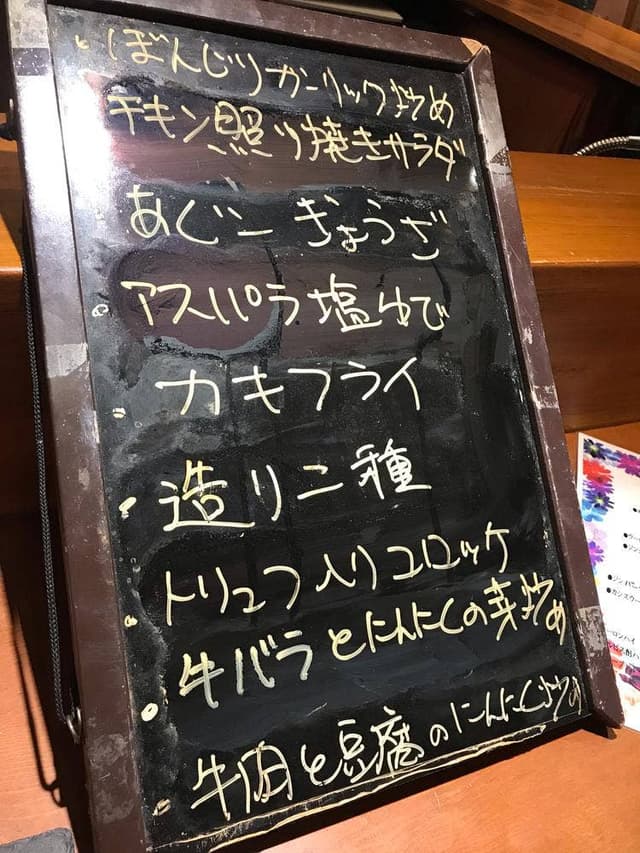 ・ぼんじりガーリック炒め
チキン照り焼きサラダ
あぐー ぎょうざ
・アスパラ塩ゆで
・カキフライ
・造り二種
・トリュフ入りコロッケ
・牛バラとにんにくの芽炒め
・牛肉と豆腐のにんにく炒め